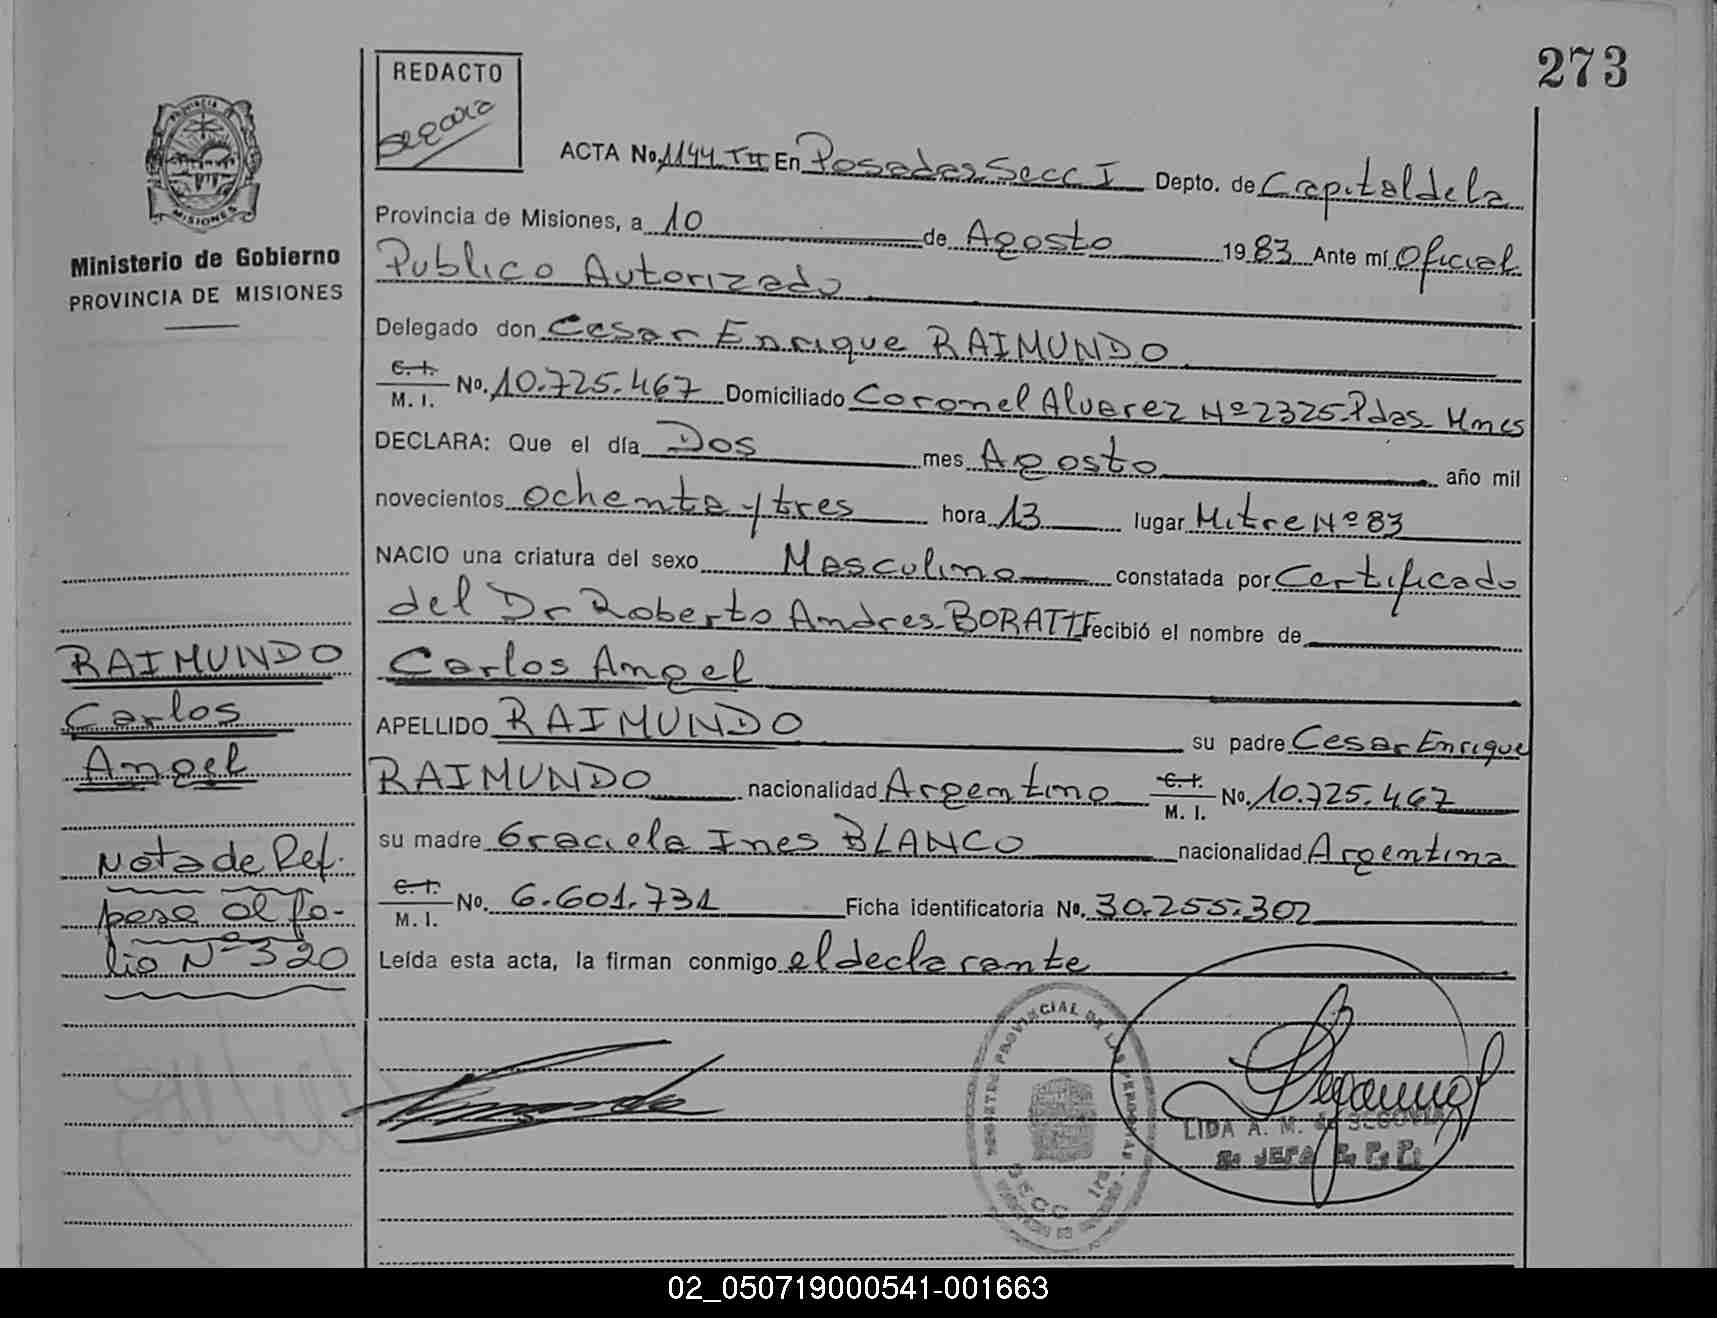 273
REDACTO
Segovia
PROVINCIA
MISIONES
Ministerio de Gobierno
PROVINCIA DE MISIONES
ACTA No. 1144 TII En Posadas Secc I Depto. de Capital de la
Provincia de Misiones, a 10 de Agosto 1983 Ante mí Oficial
Publico Autorizado
Delegado don Cesar Enrique RAIMUNDO
C. I.
M. I. No. 10.725.467 Domiciliado Coronel Alvarez Nº 2325-Pdas. Mnes
DECLARA: Que el día Dos mes Agosto año mil
novecientos ochenta y tres hora 13 lugar Mitre Nº 83
NACIO una criatura del sexo Masculino constatada por Certificado
del Dr Roberto Andres BORATTI recibió el nombre de
Carlos Angel
APELLIDO RAIMUNDO su padre Cesar Enrique
RAIMUNDO nacionalidad Argentino C. I. M. I. No. 10.725.467
su madre Graciela Ines BLANCO nacionalidad Argentina
C. I.
M. I. No. 6.601.731 Ficha identificatoria No. 30.255.302
Leída esta acta, la firman conmigo el declarante
RAIMUNDO
Carlos
Angel
Nota de Ref.
pasa al fo-
lio Nº 320
REGISTRO PROVINCIAL DE LAS PERSONAS
SECC 1ra
LIDA A. M. de SEGOVIA
JEFA R. P. P.
02_050719000541-001663